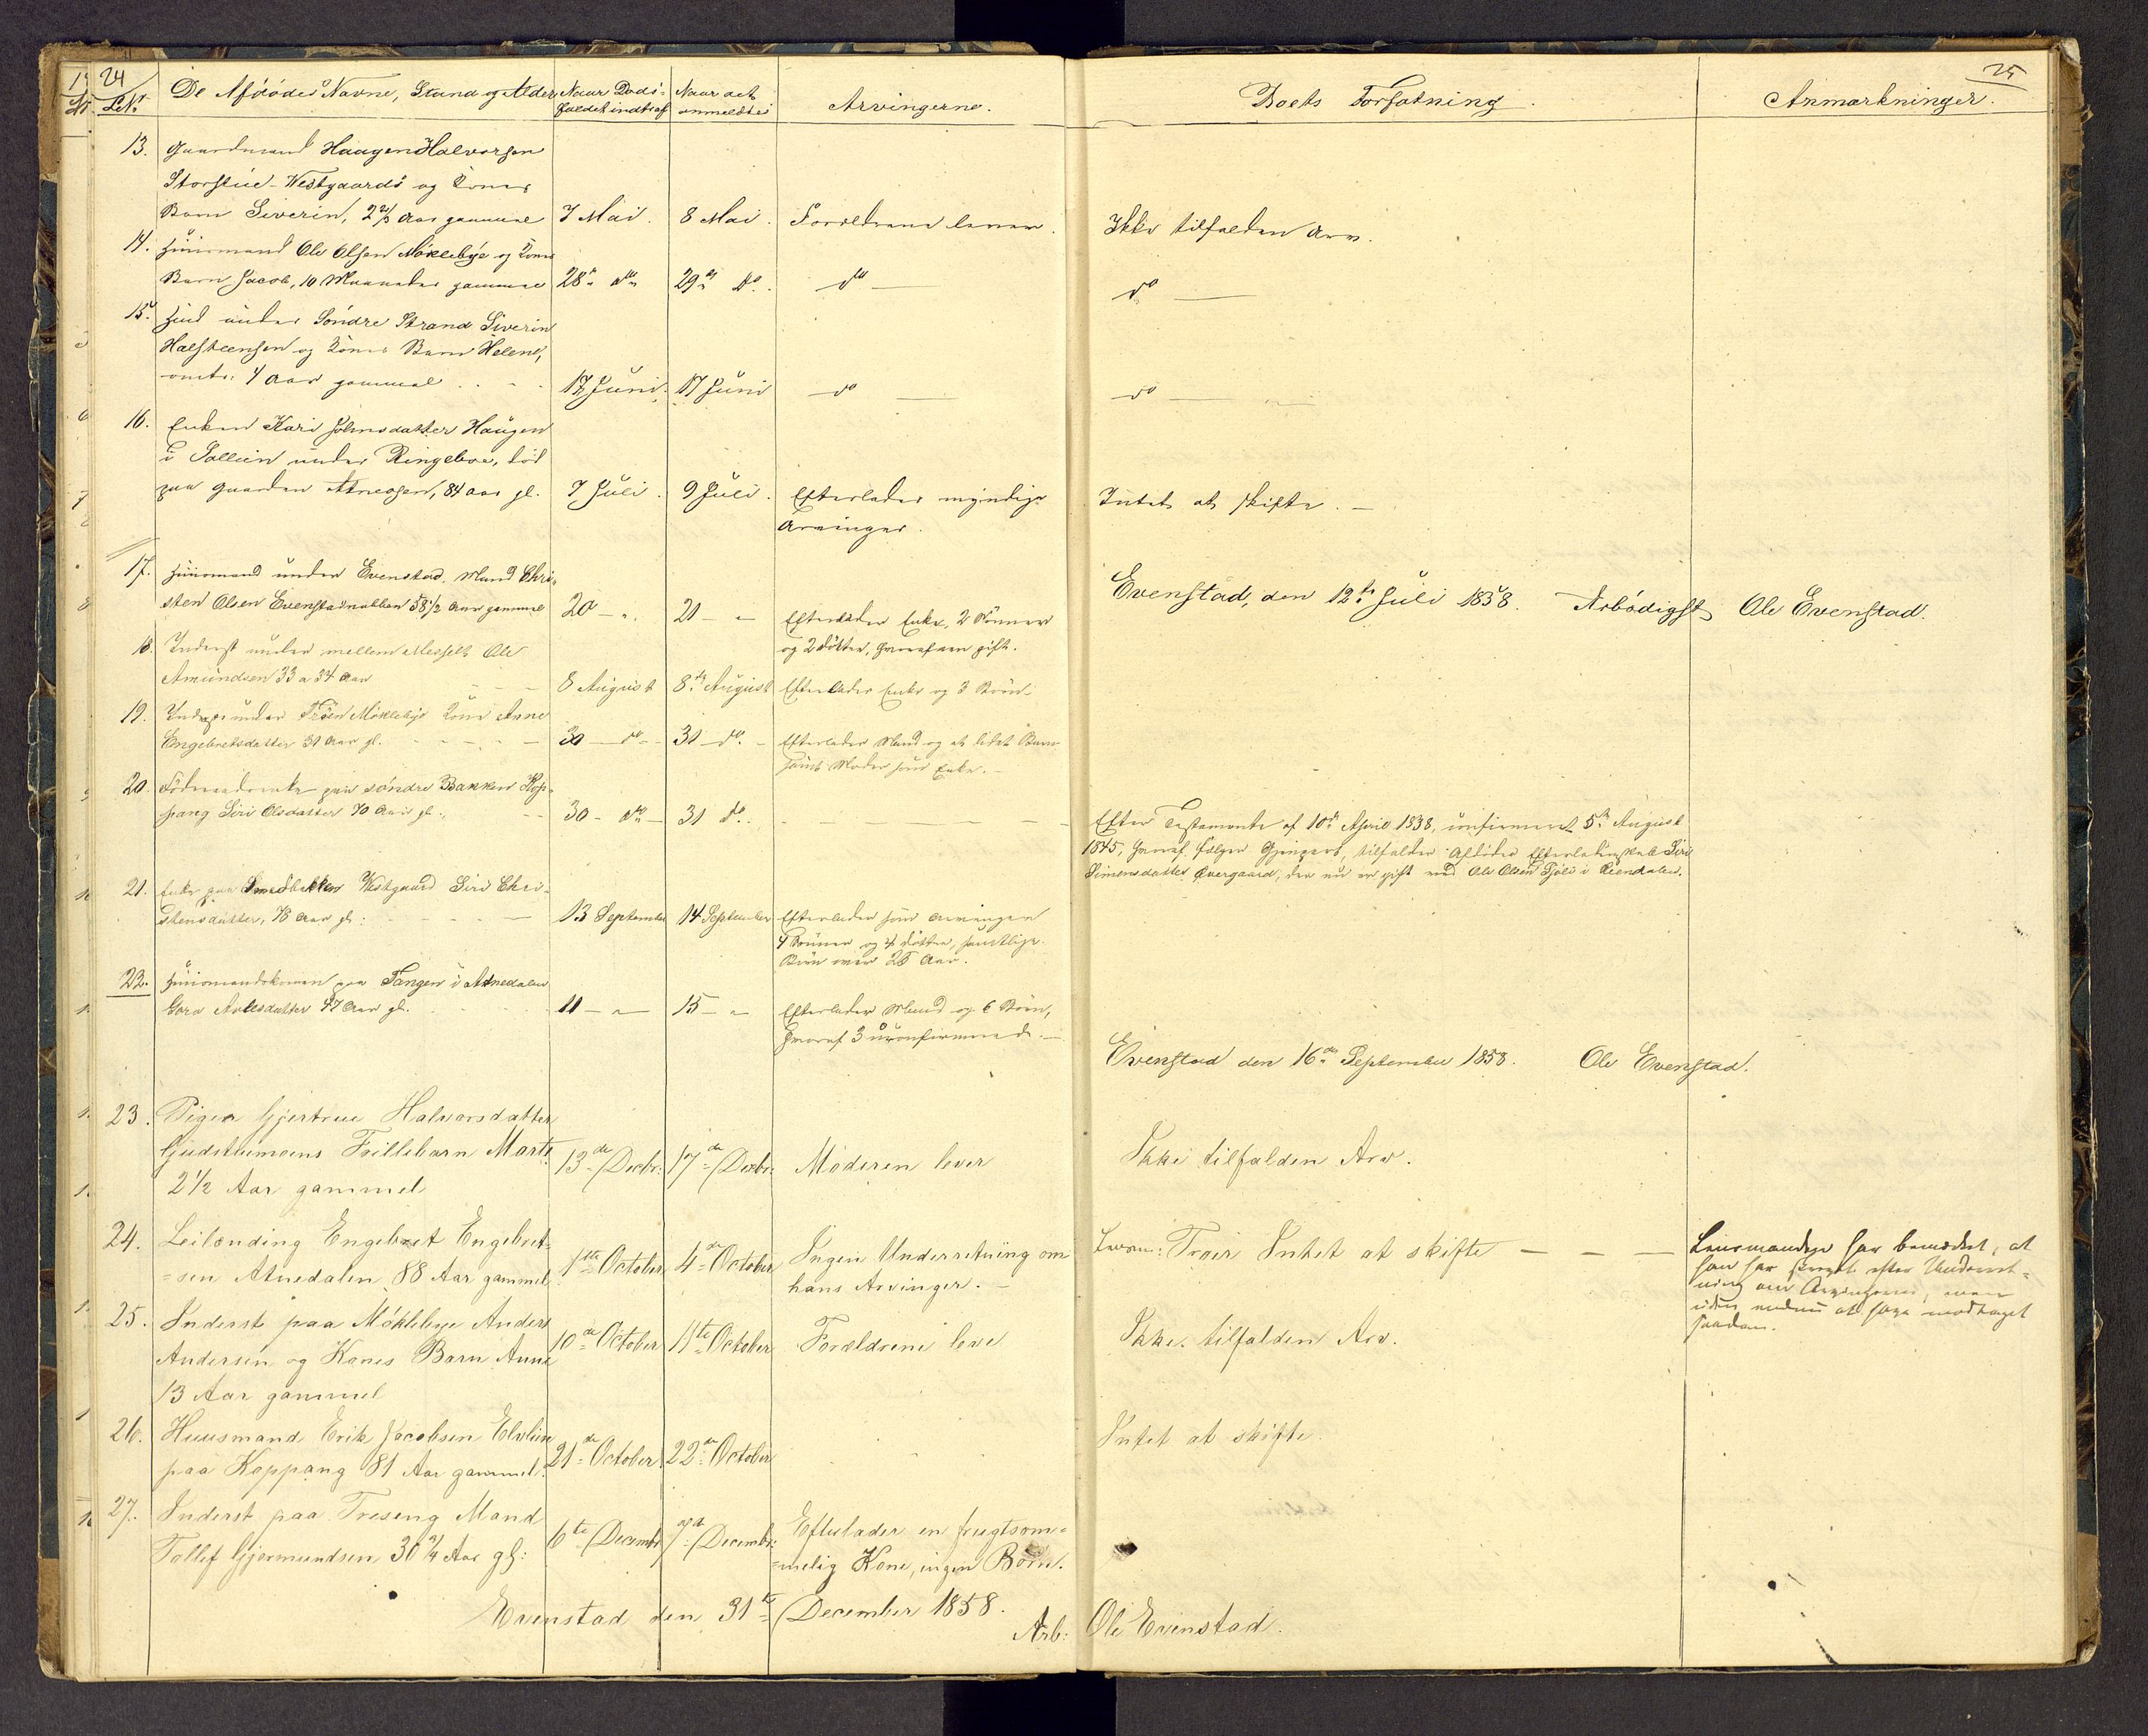 24
25
Nr. LNr. De Afdødes Navne, Stand og Alder Naar Døds- Naar det Arvingerne. Boets Forfatning. Anmærkninger.
faldet indtraf anmeldtes
13. Gaardmand Haagen Halvorsen
Storstue-Westgaards og Kones
Barn Siverin, 2 1/2 Aar gammel 7 Mai. 8 Mai. Forældrene lever. Ikke tilfalden Arv.
14. Huusmand Ole Olsen Møklebye og Kones
Barn Jacob, 10 Maaneder gammel 28de do 29de do. do — do —
15. Huusmd under Søndre Strand Siverin
Halsteensen og Kones Barn Helene,
omtr: 4 Aar gammel . . . 17 Juni. 17 Juni do — do —
16. Enken Kari Johnsdatter Haugen
i Sollien under Ringeboe, død
paa Gaarden Atneosen, 84 Aar gl. 7 Juli. 9 Juli. Efterlader myndige Intet at skifte. —
Arvinger.
17. Huusmand under Evenstad, Mand Chri-
sten Olsen Evenstadnabben 58 1/2 Aar gammel 20 — „. 21 — „ Efterlader Enke, 2 Sønner
og 2 Døttre, hvoraf een gift.
Evenstad, den 12te Juli 1858. Ærbødigst Ole Evenstad.
18. Inderst under mellem Messelt Ole
Amundsen 33 a 34 Aar — — — 8 August 8de August Efterlader Enke og 3 Børn
19. Inderst under Trøen Møklebye Kone Anne
Engebretsdatter 31 Aar gl. — — — 30 — do — 31 — do. — Efterlader Mand og et lidet Barn
samt Moder som Enke. —
20. Føderaadsenke paa søndre Bakken Kop-
pang Siri Olsdatter 70 Aar gl. — — 30 — do — 31 do. . — — — —
Efter Testamente af 10de April 1838, confirmeret 5te August
1845, hvoraf følger Gjenpart, tilfalder Afdødes Efterladenskab Siri
Simensdatter Øvergaard, der nu er gift med Ole Olsen Fjols i Reendalen.
21. Enke paa Smedbakken Westgaard Siri Chri-
stensdatter, 78 Aar gl: — — — 13 September 14 September Efterlader som Arvinger
4 Sønner og 4 Døttre, samtlige
Børn over 25 Aar.
22. Huusmandskonen paa Tangen i Atnedalen
Goro Atlesdatter 47 Aar gl. . . . 11 — „ — 15 — „ Efterlader Mand og 6 Børn,
hvoraf 3 uconfirmerede. —
Evenstad den 16de September 1858. Ole Evenstad.
23. Pigen Gjertrue Halvorsdatter
Gudstumoens Frillebarn Marte 13de Decbr: 17de Decbr: Moderen lever Ikke tilfalden Arv.
2 1/2 Aar gammel
24. Leilænding Engebret Engebret-
=sen Atnedalen 88 Aar gammel 1ste October 4de October Ingen Underretning om
hans Arvinger. —
Intet at skifte — — — Lensmanden har bemærket, at
han har søgt efter Underret-
ning om Arvingerne, men
uden endnu at have modtaget
saadan.
25. Inderst paa Møklebye Anders
Andersen og Kones Barn Anne 10de October 11te October Forældrene leve Ikke tilfalden Arv.
13 Aar gammel
26. Huusmand Erik Jacobsen Elvlien
paa Koppang 81 Aar gammel. 21de October 22de October Intet at skifte.
27. Inderst paa Treseng Mand
Tollef Gjermundsen 30 3/4 Aar gl: 6te Decembr 7de Decembr: Efterlader en frugtsom-
=melig Kone, ingen Børn.
Evenstad den 31te December 1858.
Ærb: Ole Evenstad.